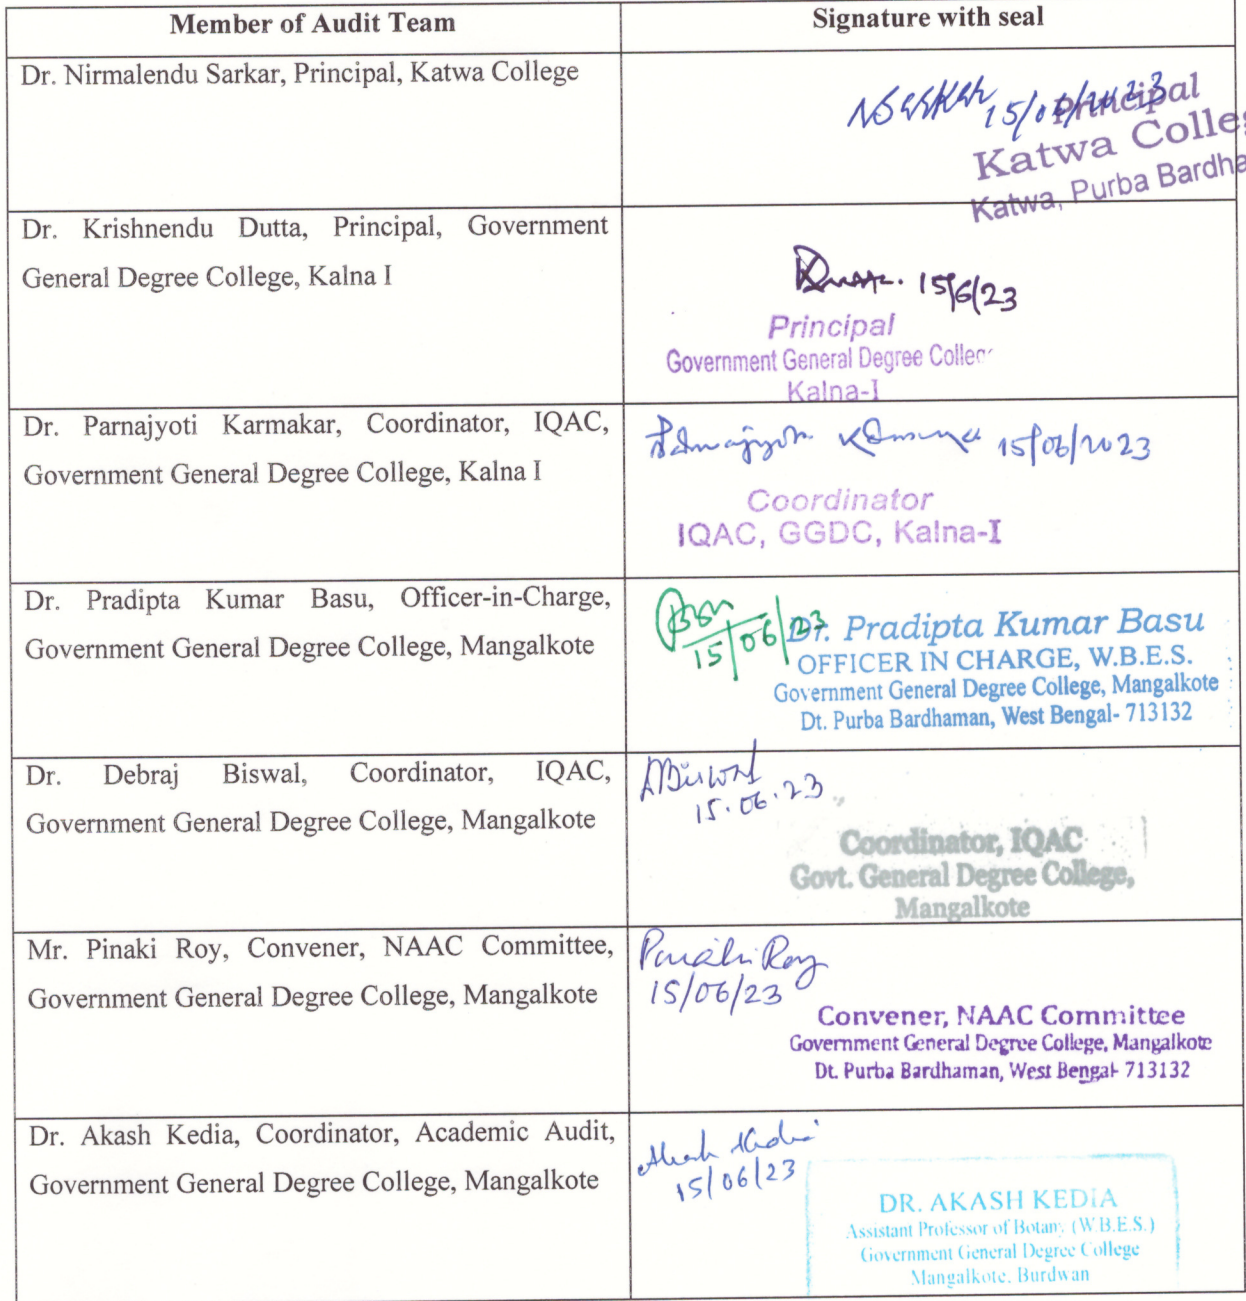 Member of Audit Team
Signature with seal
Dr. Nirmalendu Sarkar, Principal, Katwa College
NSarkar 15/06/2023
Principal
Katwa Colle
Katwa, Purba Bardha
Dr. Krishnendu Dutta, Principal, Government
General Degree College, Kalna I
15/6/23
Principal
Government General Degree Colleg
Kalna-I
Dr. Parnajyoti Karmakar, Coordinator, IQAC,
Government General Degree College, Kalna I
Parnajyoti Karmakar 15/06/2023
Coordinator
IQAC, GGDC, Kalna-I
Dr. Pradipta Kumar Basu, Officer-in-Charge,
Government General Degree College, Mangalkote
15/06/23
Dr. Pradipta Kumar Basu
OFFICER IN CHARGE, W.B.E.S.
Government General Degree College, Mangalkote
Dt. Purba Bardhaman, West Bengal- 713132
Dr. Debraj Biswal, Coordinator, IQAC,
Government General Degree College, Mangalkote
DBiswal
15.06.23
Coordinator, IQAC
Govt. General Degree College,
Mangalkote
Mr. Pinaki Roy, Convener, NAAC Committee,
Government General Degree College, Mangalkote
Pinaki Roy
15/06/23
Convener, NAAC Committee
Government General Degree College, Mangalkote
Dt. Purba Bardhaman, West Bengal- 713132
Dr. Akash Kedia, Coordinator, Academic Audit,
Government General Degree College, Mangalkote
Akash Kedia
15/06/23
DR. AKASH KEDIA
Assistant Professor of Botany (W.B.E.S.)
Government General Degree College
Mangalkote, Burdwan